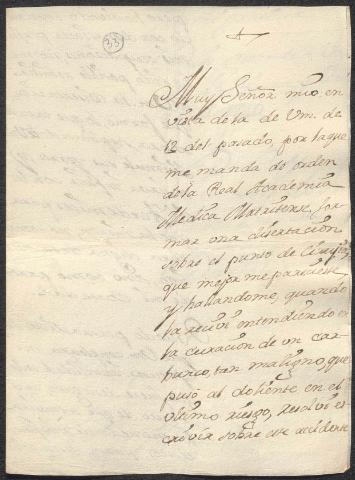 33
Muy Señor mio en
vista de la de Vm. de
12 del pasado, por la que
me manda de orden
de la Real Academia
Medica Matritense, for
mar una disertación
sobre el punto de Cirugia,
que mejor me pareciese
y hallandome, quando
la recivi entendiendo en
la curación de un car
bunco, tan maligno, que
puso al doliente en el
ultimo riesgo, resolvi es
crovir sobre este accidente